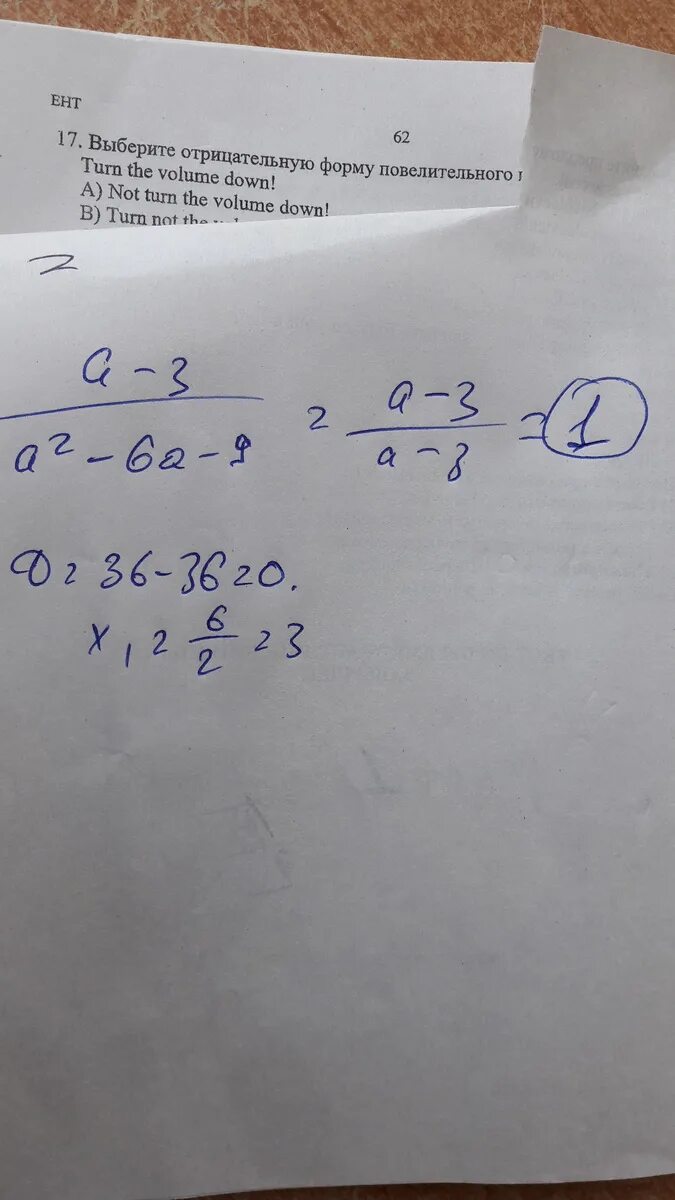 ЕНТ
62
17. Выберите отрицательную форму повелительного
Turn the volume down!
A) Not turn the volume down!
B) Turn not the
a - 3 / a² - 6a - 9 = a - 3 / a - 3 = 1
D = 36 - 36 = 0.
x₁ = 6 / 2 = 3